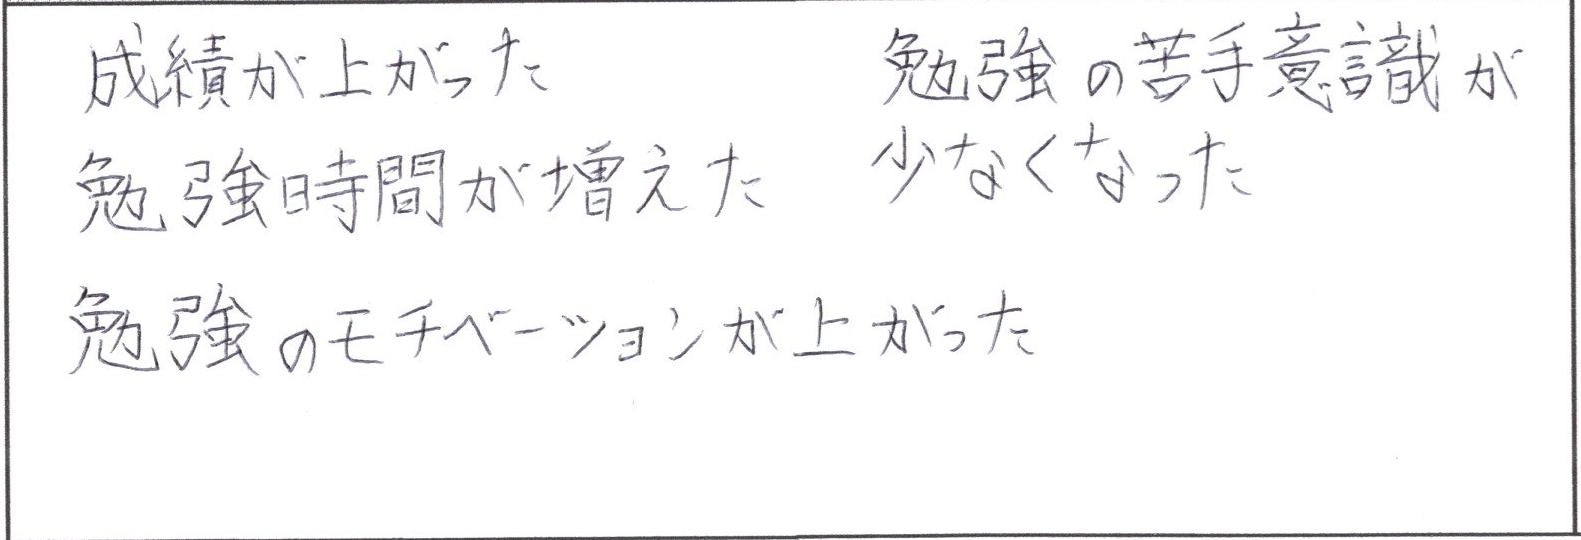 成績が上がった
勉強時間が増えた
勉強のモチベーションが上がった
勉強の苦手意識が
少なくなった